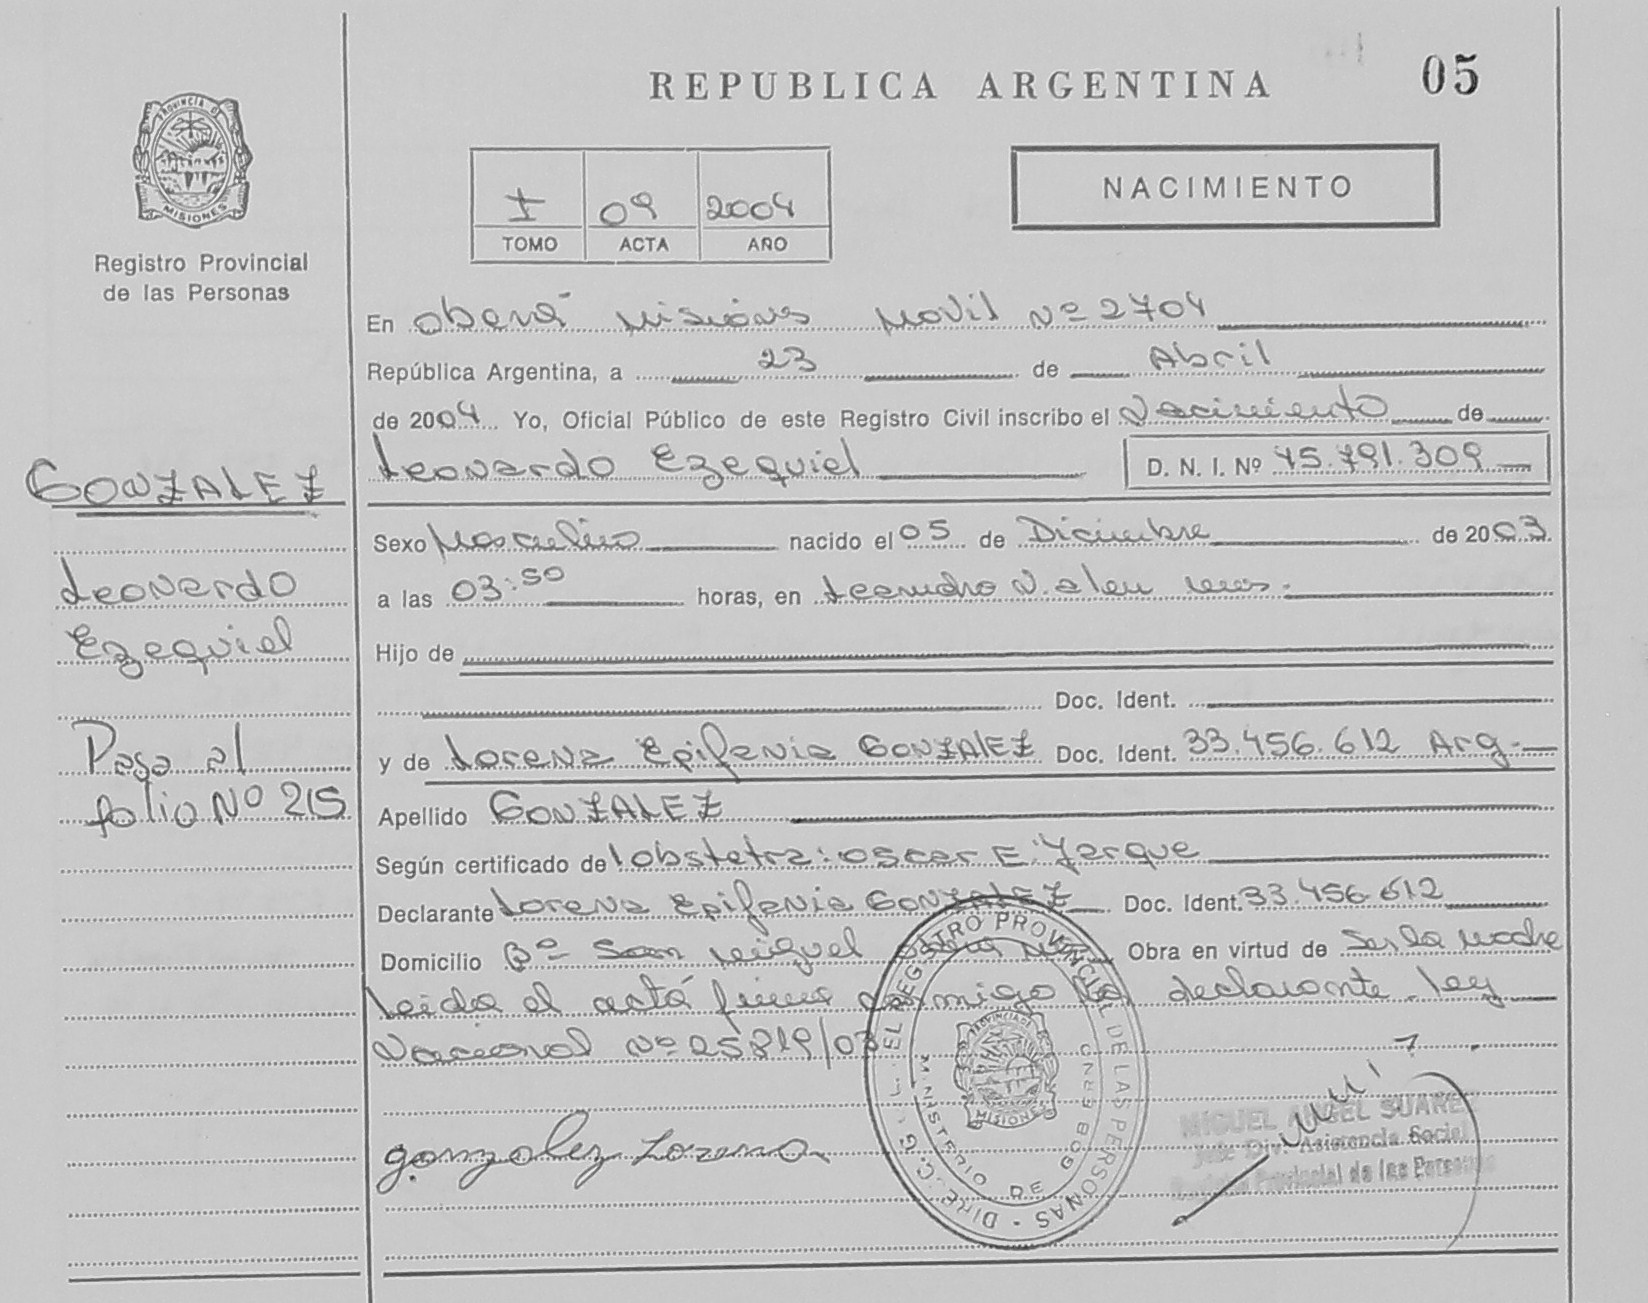 REPUBLICA ARGENTINA 05
PROVINCIA DE
MISIONES
Registro Provincial
de las Personas
I 09 2004
TOMO ACTA AÑO
NACIMIENTO
En Oberá Misiones Movil Nº 2704
República Argentina, a 23 de Abril
de 2004 Yo, Oficial Público de este Registro Civil inscribo el Nacimiento de
Leonardo Ezequiel D. N. I. Nº 45.791.309
GONZALEZ
Leonardo
Ezequiel
Pasa al
folio Nº 215
Sexo Masculino nacido el 05 de Diciembre de 2003
a las 03:50 horas, en Leandro N. Alem
Hijo de
Doc. Ident.
y de Lorena Epifania GONZALEZ Doc. Ident. 33.456.612 Arg.
Apellido GONZALEZ
Según certificado del obstetra: Oscar E. Yarque
Declarante Lorena Epifania GONZALEZ Doc. Ident. 33.456.612
Domicilio Bº San Miguel Obra en virtud de Ser la madre
Leida el acta firma conmigo la declarante. Ley
Nacional Nº 25819/03
Gonzalez Lorena
REGISTRO PROVINCIAL DE LAS PERSONAS
MINISTERIO DE GOBIERNO
PROVINCIA DE
MISIONES
MIGUEL ANGEL SUAREZ
Jefe Div. Asistencia Social
Registro Provincial de las Personas